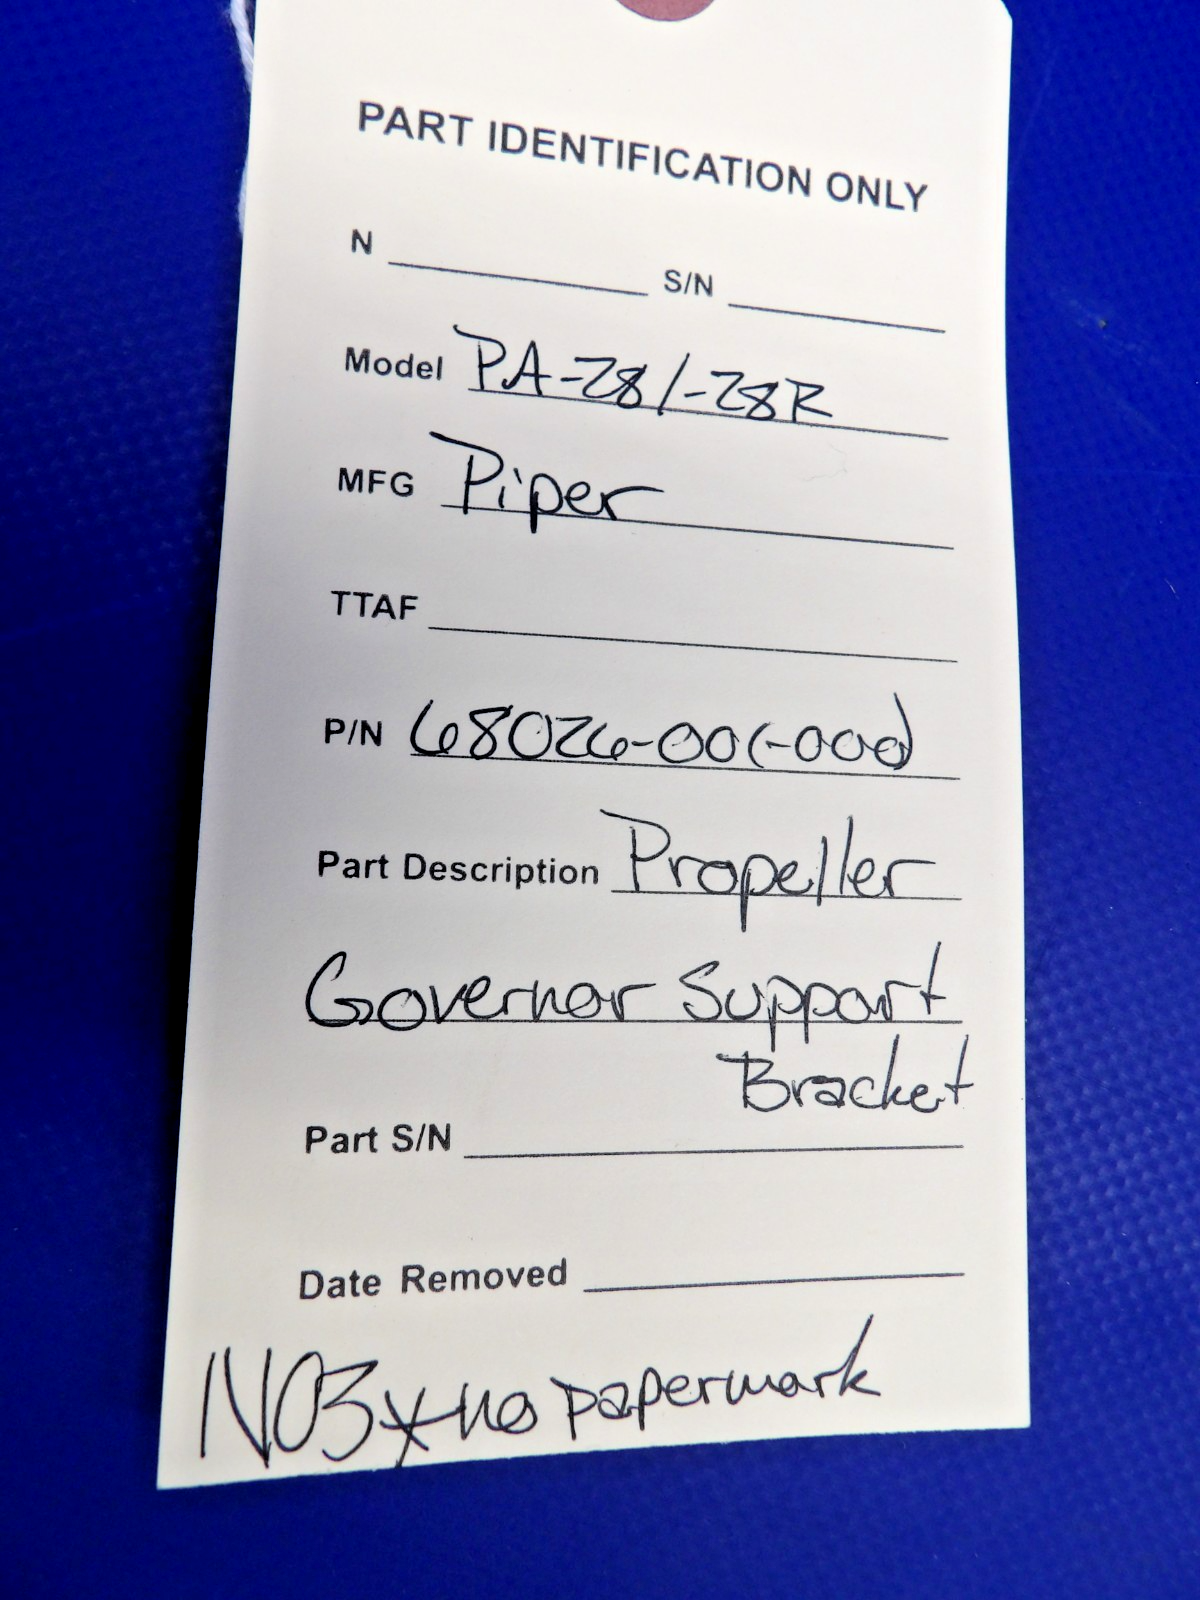 PART IDENTIFICATION ONLY
N S/N
Model PA-28/-28R
MFG Piper
TTAF
P/N 68026-001-000
Part Description Propeller
Governor Support
Bracket
Part S/N
Date Removed
papermark